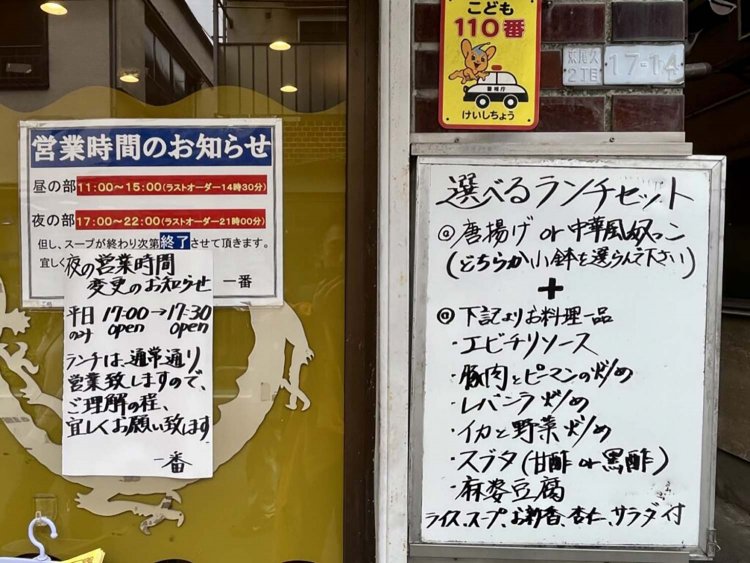 営業時間のお知らせ
昼の部 11:00〜15:00(ラストオーダー14時30分)
夜の部 17:00〜22:00(ラストオーダー21時00分)
但し、スープが終わり次第終了させて頂きます。
宜しく
一番
夜の営業時間
変更のお知らせ
平日のみ 17:00 open → 17:30 open
ランチは、通常通り
営業致しますので、
ご理解の程、
宜しくお願い致します
一番
こども
110番
警視庁
けいしちょう
東尾久
2丁目
17-14
選べるランチセット
◎唐揚げ or 中華風奴っこ
(どちらか小鉢を選らんで下さい)
+
◎下記よりお料理一品
・エビチリソース
・豚肉とピーマンの炒め
・レバニラ炒め
・イカと野菜炒め
・スブタ(甘酢 or 黒酢)
・麻婆豆腐
ライス、スープ、お新香、杏仁、サラダ付